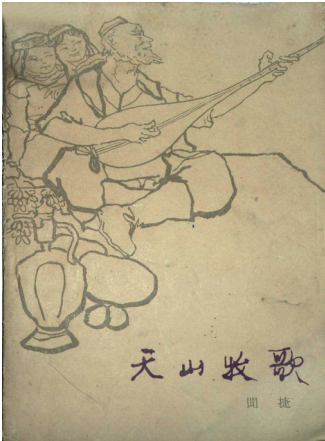 天山牧歌
聞捷